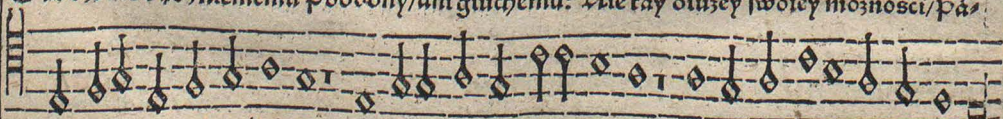 niememu podobny/ani głuchemu. Nie tay dłużey swoiey możności/ Pá-